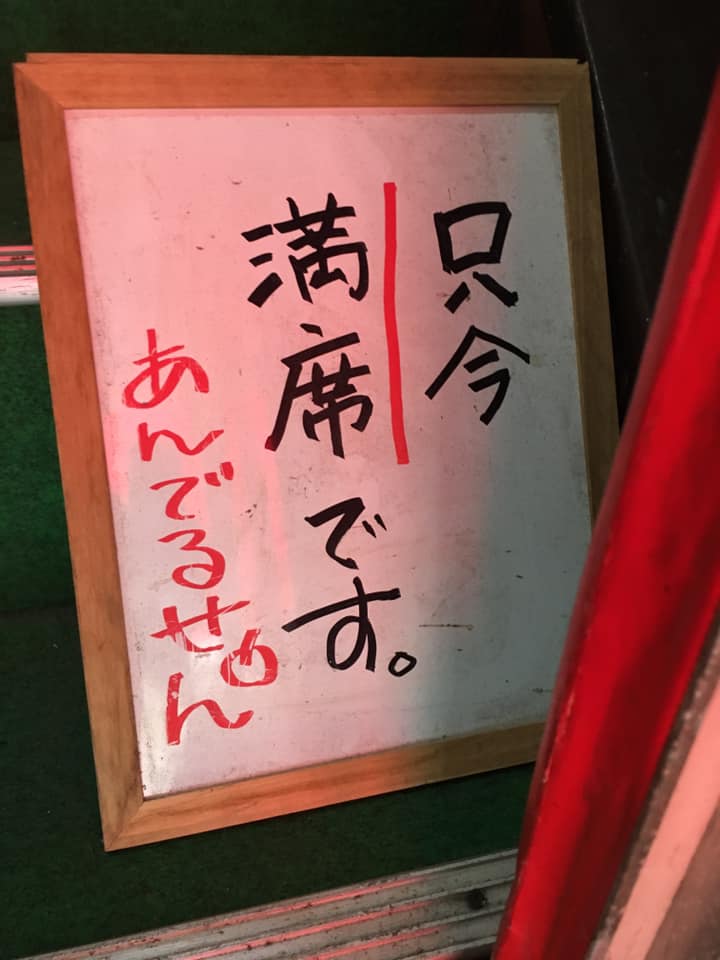 只今
満席です。
あんでるせめん